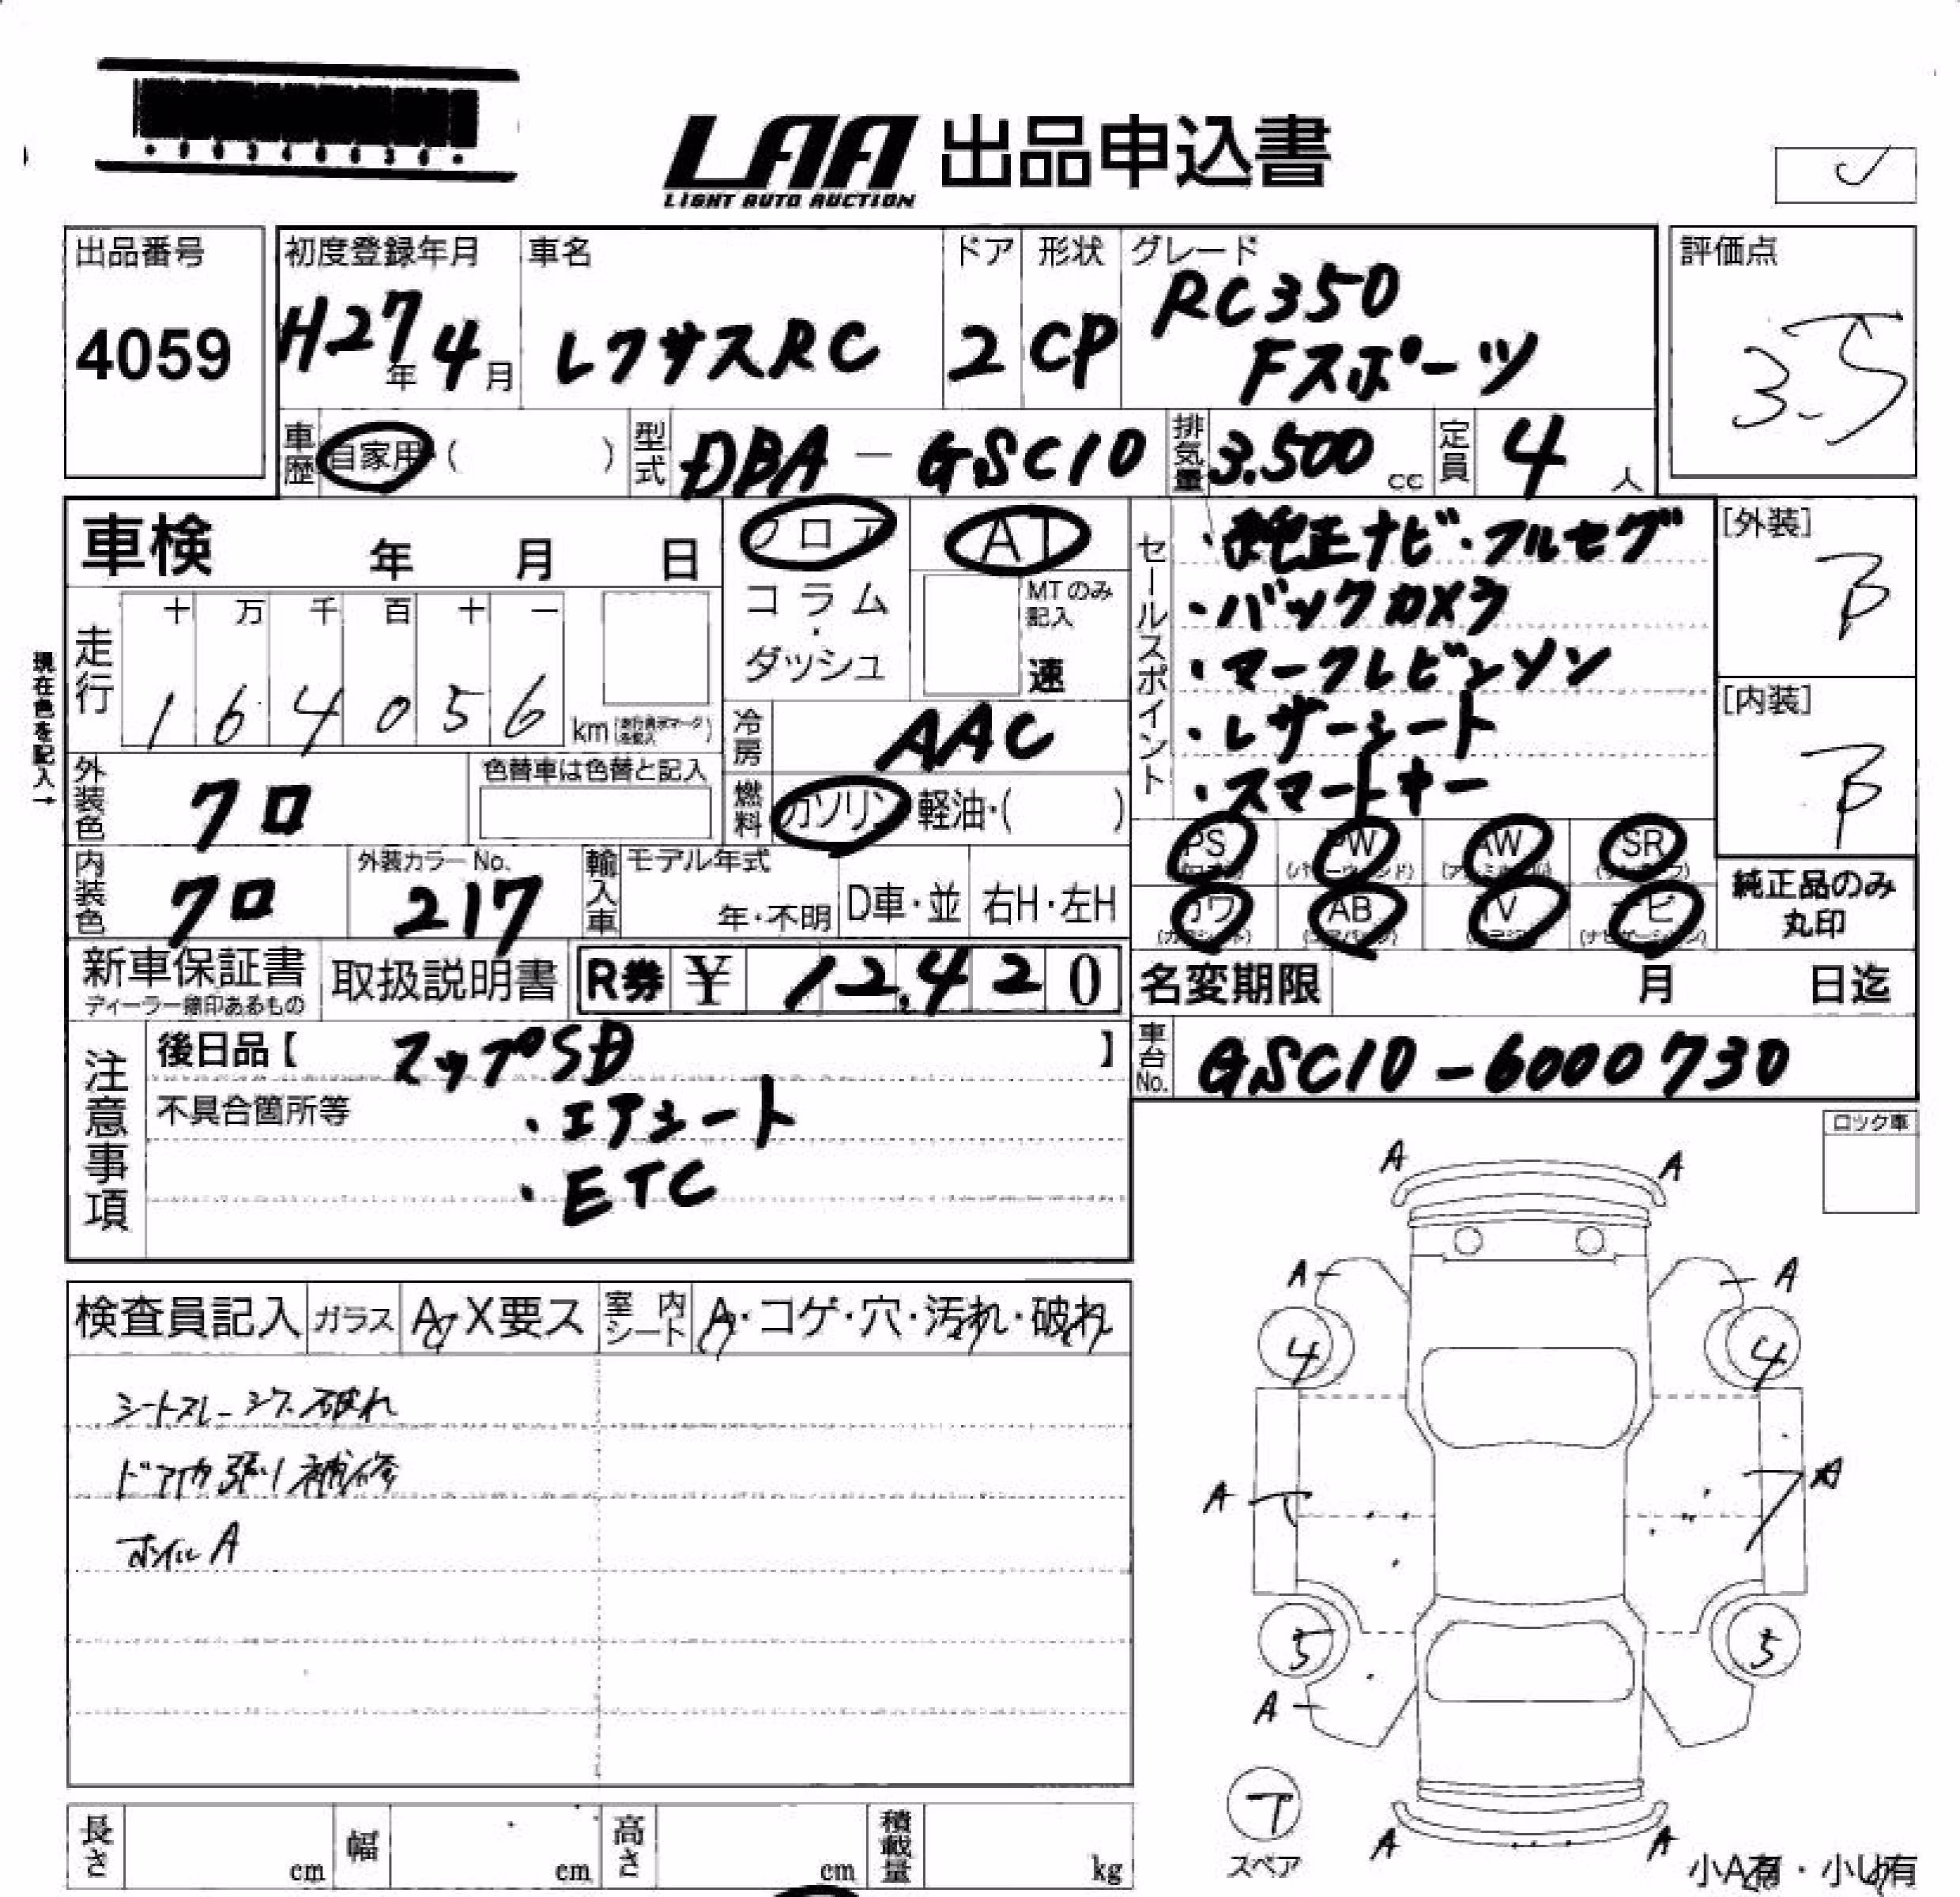 LAA 出品申込書
LIGHT AUTO AUCTION
出品番号
4059
初度登録年月
H27年 4月
車名
レクサスRC
ドア
2
形状
CP
グレード
RC350
Fスポーツ
評価点
3.5
車歴 自家用・( )
型式 DBA-GSC10
排気量 3.500 cc
定員 4 人
車検 年 月 日
フロア
コラム
・
ダッシュ
AT
MTのみ
記入
速
セールスポイント
・純正ナビ・フルセグ
・バックカメラ
・マークレビンソン
・レザーシート
・スマートキー
[外装]
B
[内装]
B
現在色を記入→
走行
十 万 千 百 十 一
1 6 4 0 5 6 km
冷房 AAC
燃料 ガソリン・軽油・( )
外装色 クロ
色替車は色替と記入
内装色 クロ
外装カラーNo.
217
輸入車
モデル年式
年・不明
D車・並
右H・左H
PS PW AW SR
カワ AB TV ナビ
純正品のみ
丸印
新車保証書
ディーラー捺印あるもの
取扱説明書
R券 ¥ 12,420
名変期限 月 日迄
車台No. GSC10-6000730
注意事項
後日品【 マップSD 】
不具合箇所等
・エアシート
・ETC
ロック車
検査員記入
ガラス A・X要ス
室内シート A・コゲ・穴・汚れ・破れ
シートスレ-シワ-破れ
ドア内張り補修
ホイルA
A A
A A
4 4
A A
5 5
A
T
スペア
A A
小A有・小U有
長さ cm
幅 cm
高さ cm
積載量 kg